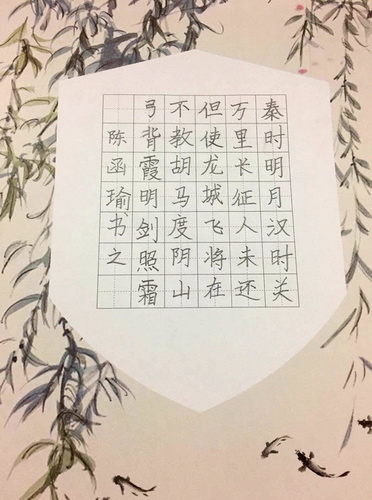 秦时明月汉时关
万里长征人未还
但使龙城飞将在
不教胡马度阴山
弓背霞明剑照霜
陈函瑜书之